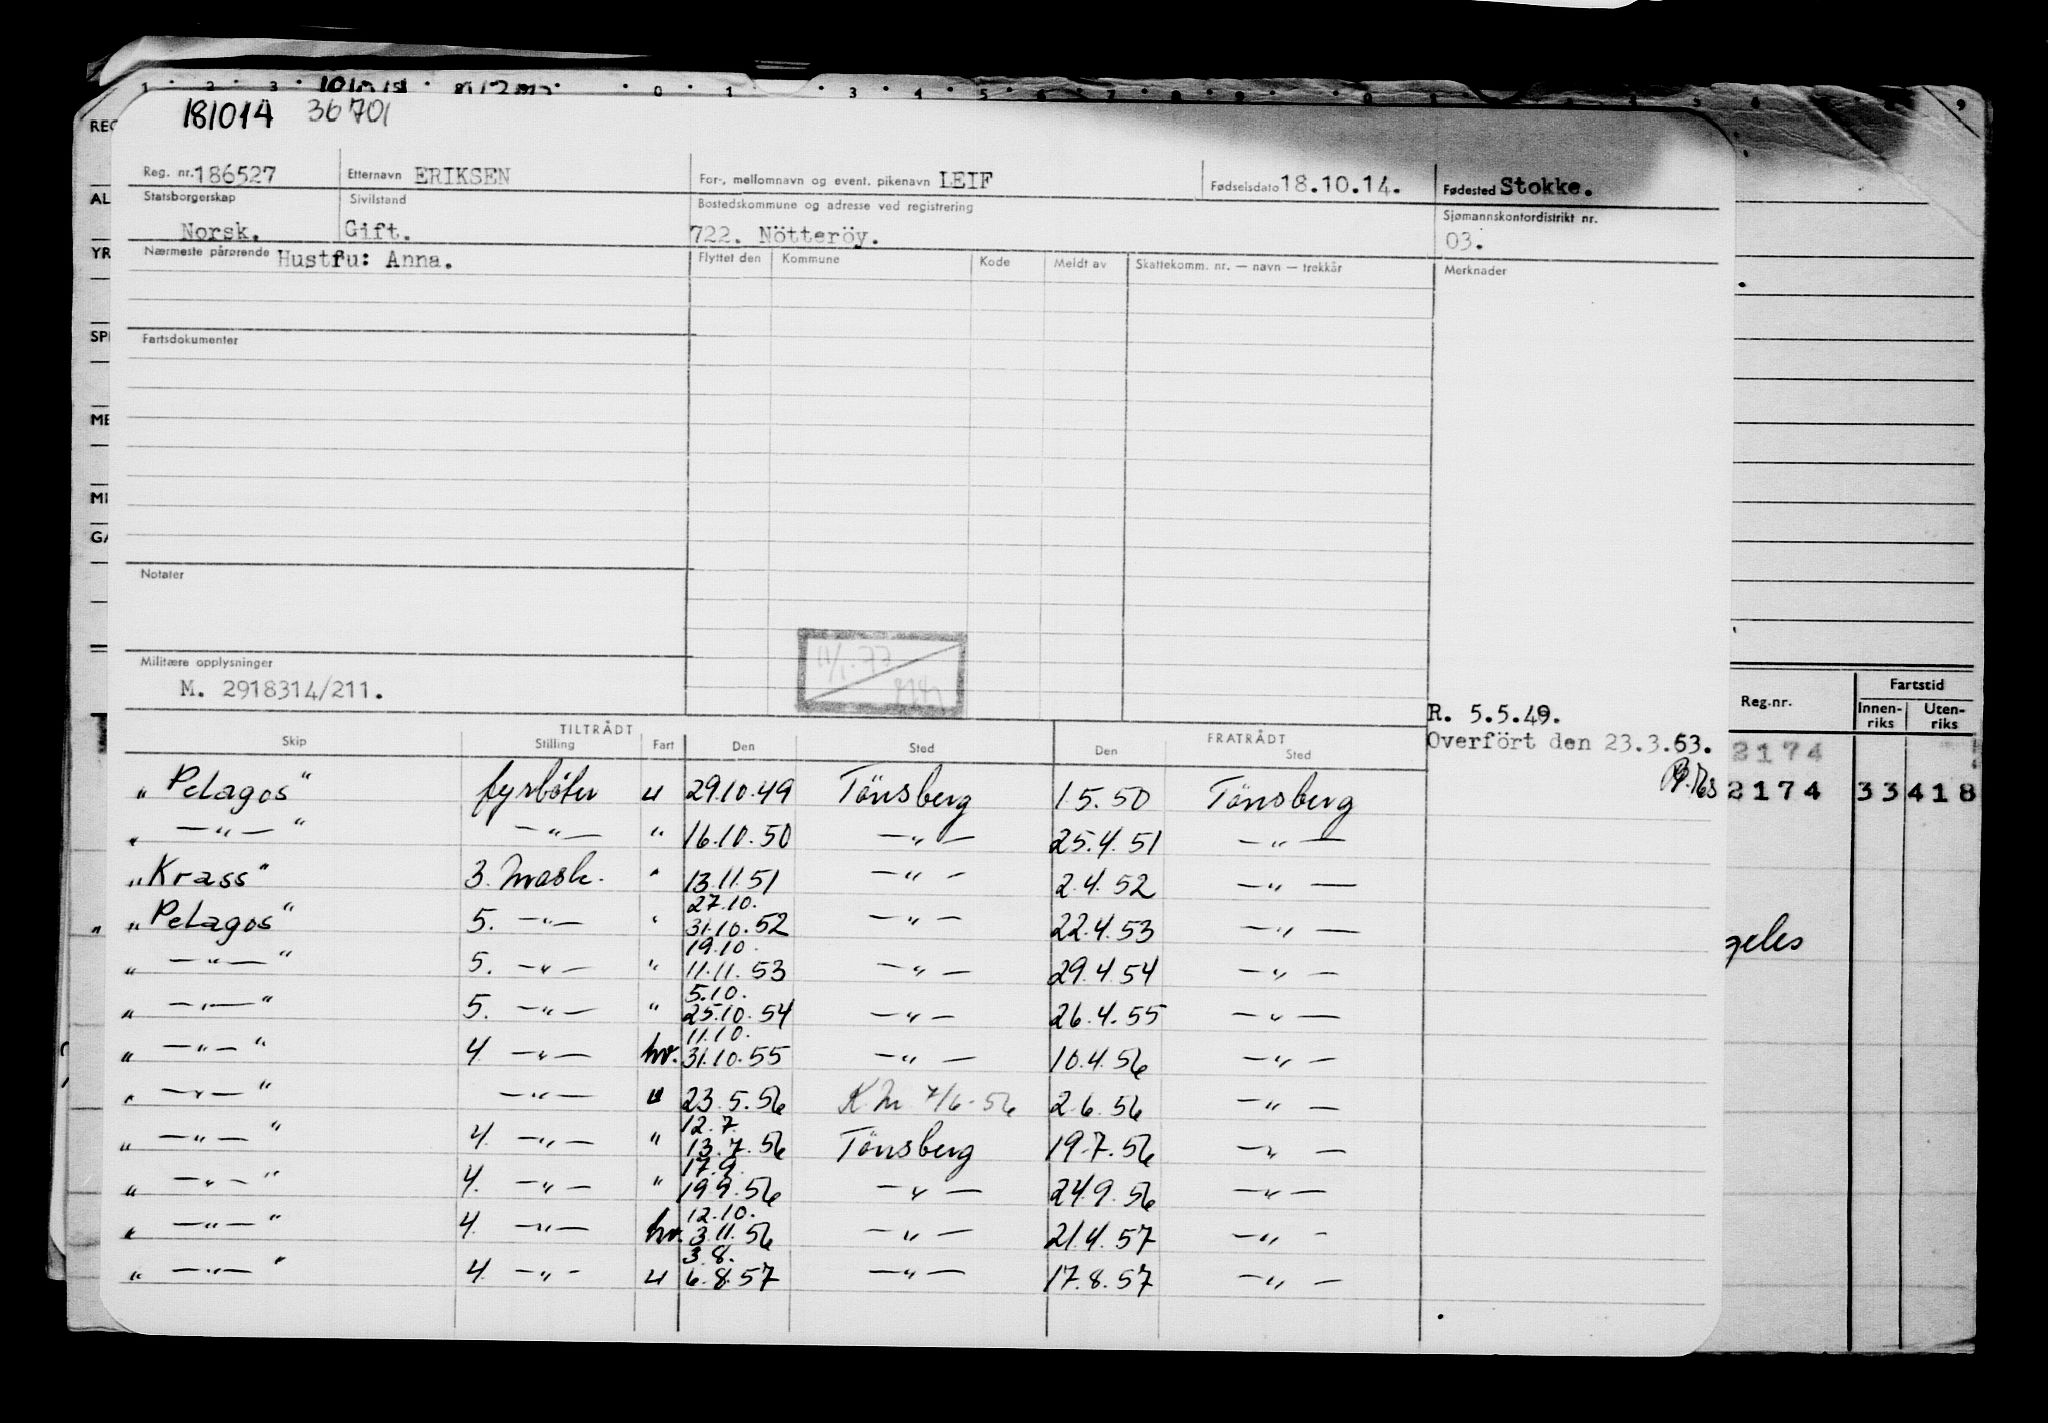 1 2 3 0 1 3 4 5 6 7 8 9 0 9
181014 36701
REG
Reg. nr. 186527 Etternavn ERIKSEN For-, mellomnavn og event. pikenavn LEIF Fødselsdato 18.10.14. Fødested Stokke.
Statsborgerskap Sivilstand Bostedskommune og adresse ved registrering Sjømannskontordistrikt nr.
AL
Norsk. Gift. 722. Nötteröy. 03.
YR
Nærmeste pårørende Hustru: Anna. Flyttet den Kommune Kode Meldt av Skattekomm. nr. — navn — trekkår Merknader
SP
Fartsdokumenter
ME
MI
GA
Notater
11/1-77
Militære opplysninger
M. 2918314/211.
Reg.nr. Fartstid
Innen-riks Uten-riks
R. 5.5.49.
TILTRÅDT FRATRÅDT
Overfört den 23.3.53.
2174
Skip Stilling Fart Den Sted Den Sted
2174 33 418
„Pelagos" fyrbøter u 29.10.49 Tönsberg 1.5.50 Tönsberg
„ —„— " —„— " 16.10.50 —„— 25.4.51 —„—
„Krass" 3. mask. " 13.11.51 —„— 2.4.52 —„—
27.10.
„ „Pelagos" 5. —„— " 31.10.52 —„— 22.4.53 —„—
geles
19.10.
„ —„— " 5. —„— " 11.11.53 —„— 29.4.54 —„—
5.10.
„ —„— " 5. —„— " 25.10.54 —„— 26.4.55 —„—
11.10.
„ —„— " 4. —„— hv. 31.10.55 —„— 10.4.56 —„—
„ —„— " —„— u 23.5.56 K.M 7/6-56 2.6.56 —„—
12.7.
„ —„— " 4. —„— " 13.7.56 Tönsberg 19.7.56 —„—
17.9.
„ —„— " 4. —„— " 19.9.56 —„— 24.9.56 —„—
12.10.
„ —„— " 4. —„— hv. 3.11.56 —„— 21.4.57 —„—
3.8.
„ —„— " 4. —„— u 6.8.57 —„— 17.8.57 —„—